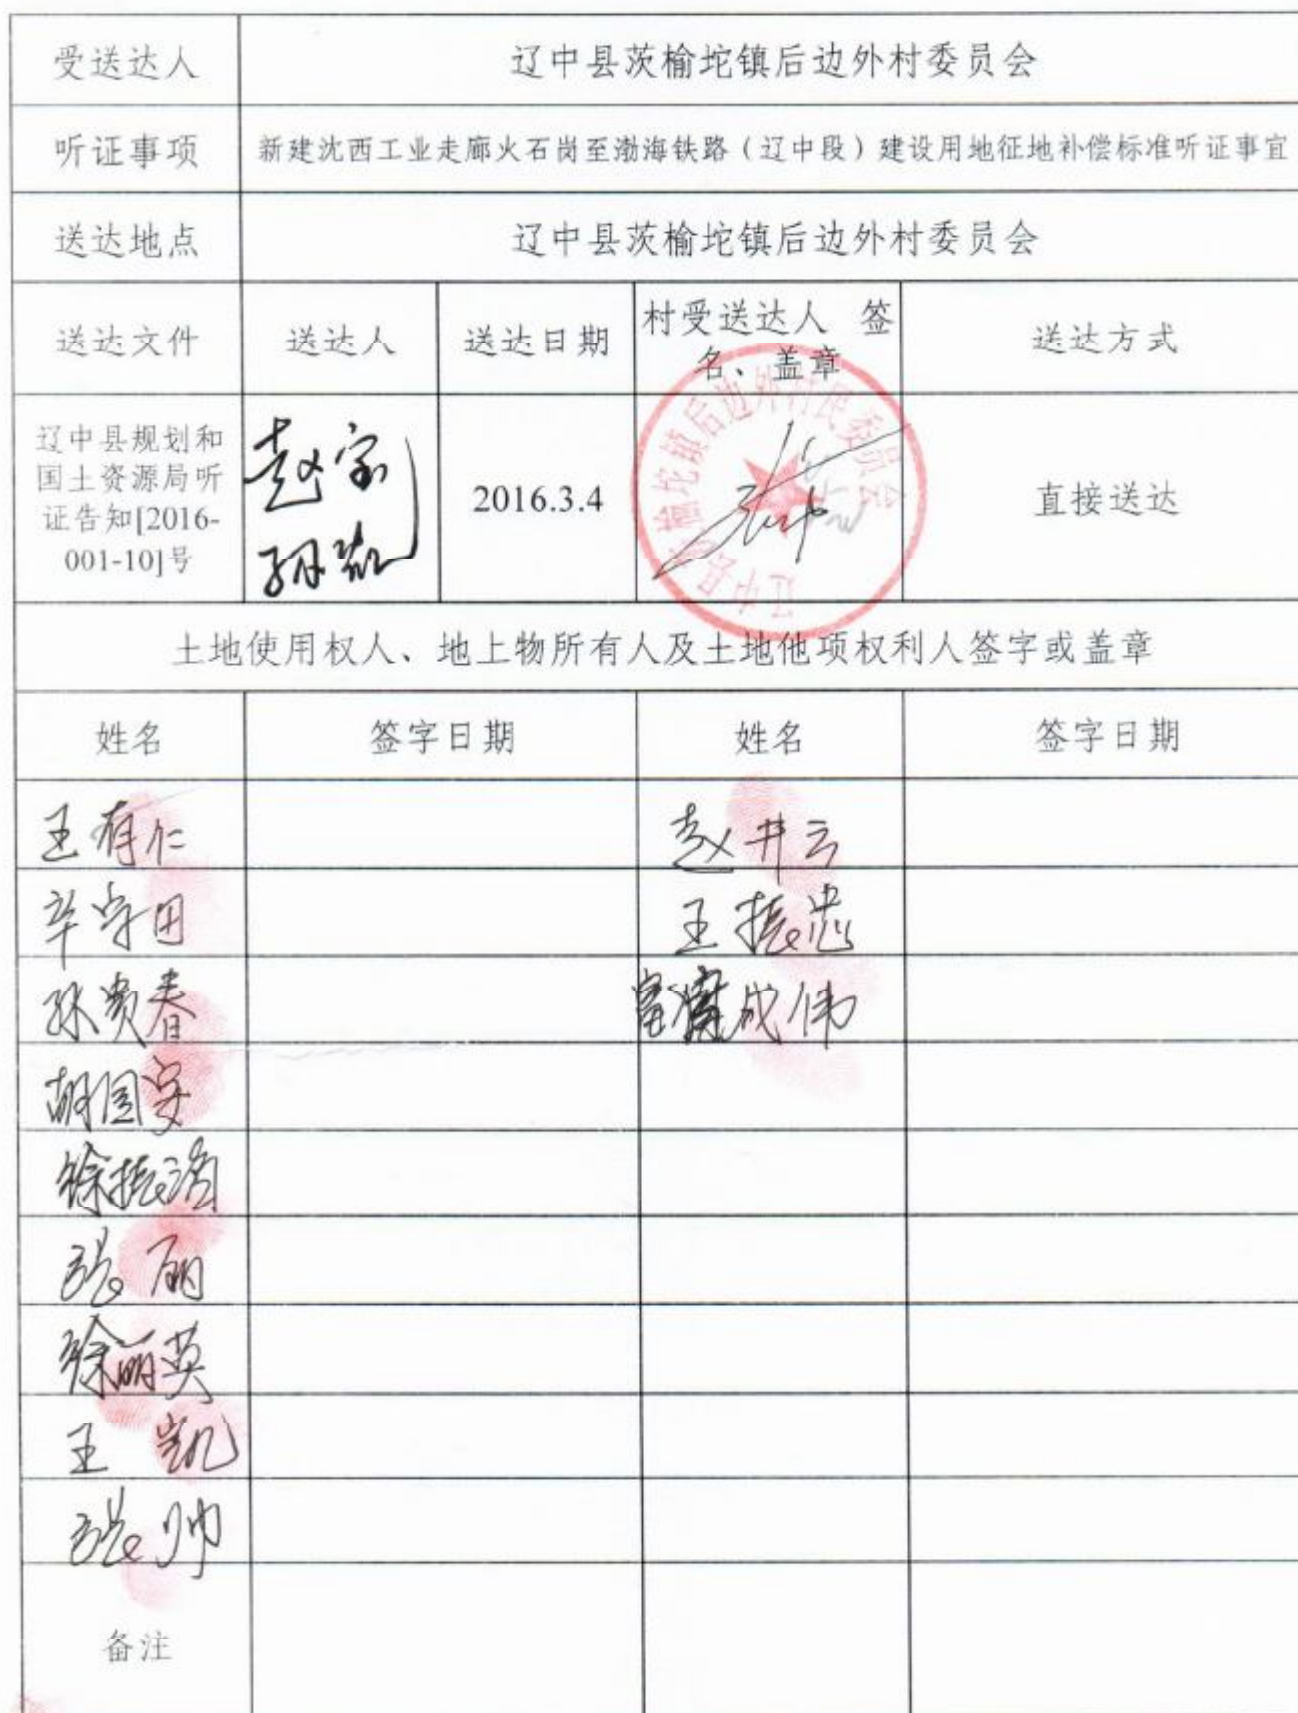 受送达人 辽中县茨榆坨镇后边外村委员会
听证事项 新建沈西工业走廊火石岗至渤海铁路（辽中段）建设用地征地补偿标准听证事宜
送达地点 辽中县茨榆坨镇后边外村委员会
送达文件 送达人 送达日期 村受送达人 签名、盖章 送达方式
辽中县规划和
国土资源局听
证告知[2016-
001-10]号
赵家
孙凯
2016.3.4
榆坨镇后边外村民委员会
直接送达
土地使用权人、地上物所有人及土地他项权利人签字或盖章
姓名 签字日期 姓名 签字日期
王有仁 赵井云
辛守田 王振忠
孙贵春 成伟
胡国安
徐振
张丽
徐丽英
王凯
张帅
备注